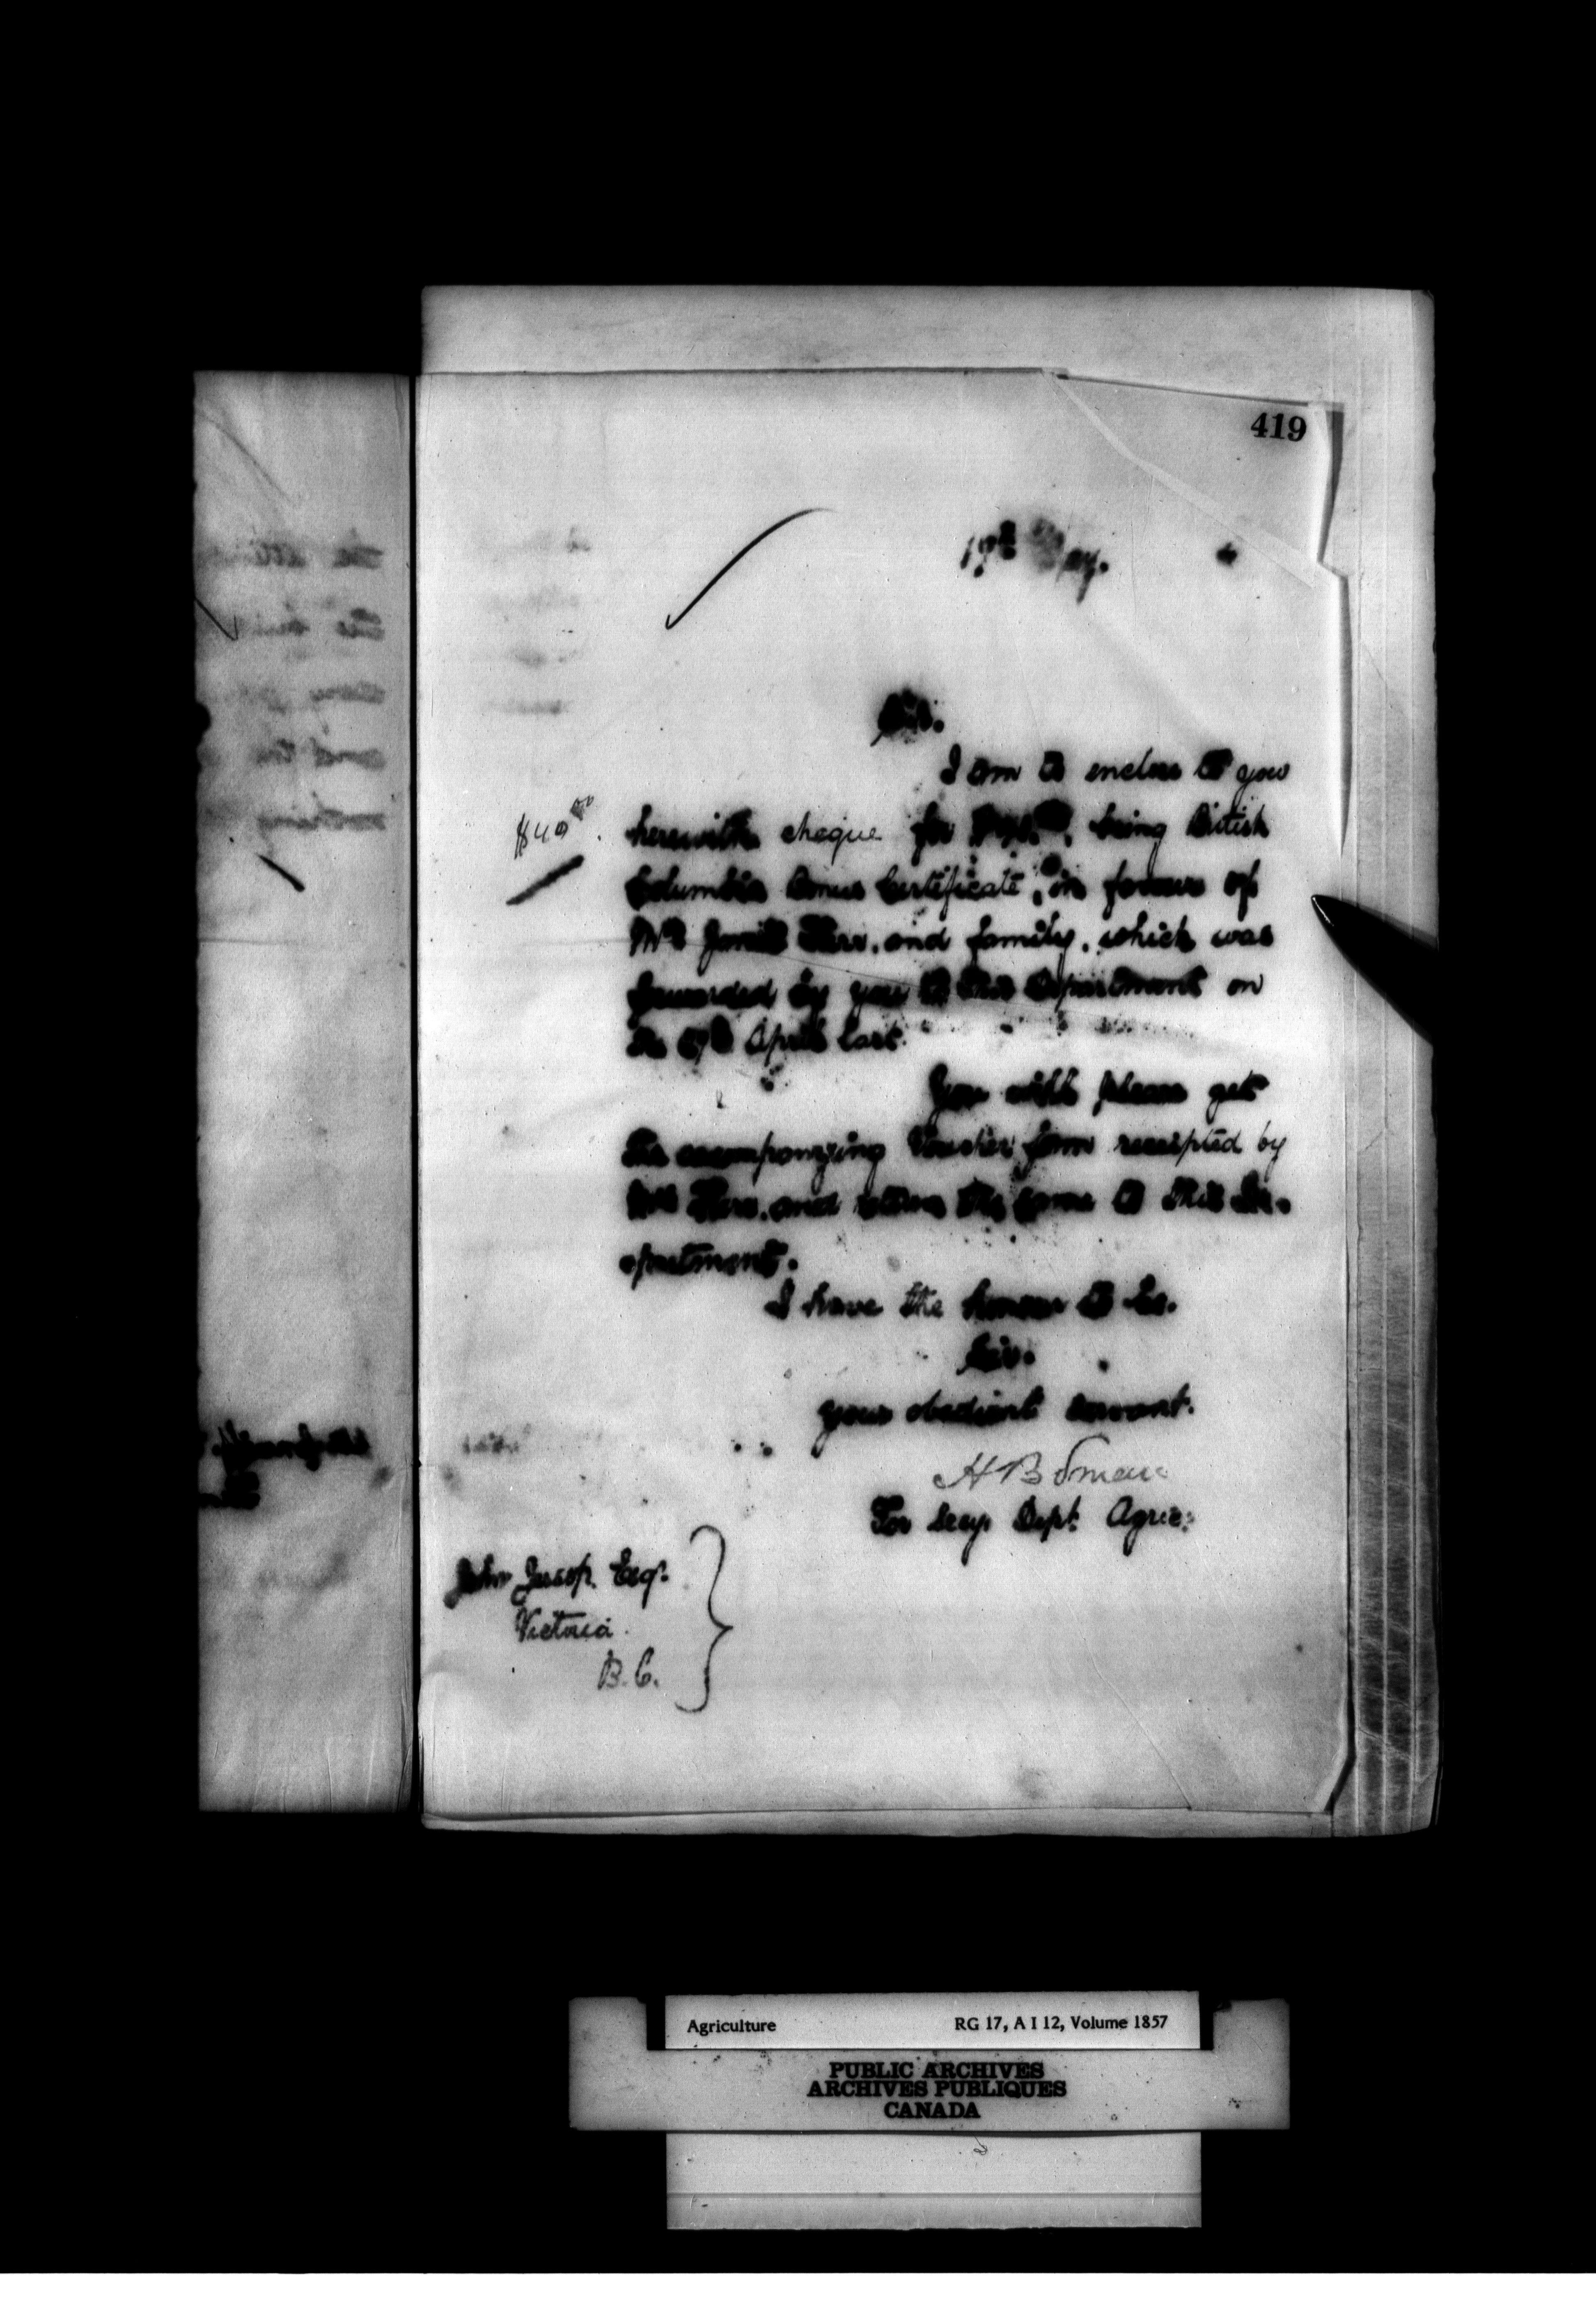 419
May.
Sir.
I am to enclose to you
$40 00.
herewith cheque for being British
Columbia Bonus Certificate, in favour of
and family, which was
forwarded by you to this Department on
the April last.
You will please get
the accompanying Voucher form receipted by
and return the same to this De-
partment.
I have the honour to be.
Sir.
your obedient servant.
H B Small
For Secy. Dept. Agric:
John Jessop. Esq.
Victoria.
B.C.
Agriculture RG 17, A I 12, Volume 1857
PUBLIC ARCHIVES
ARCHIVES PUBLIQUES
CANADA